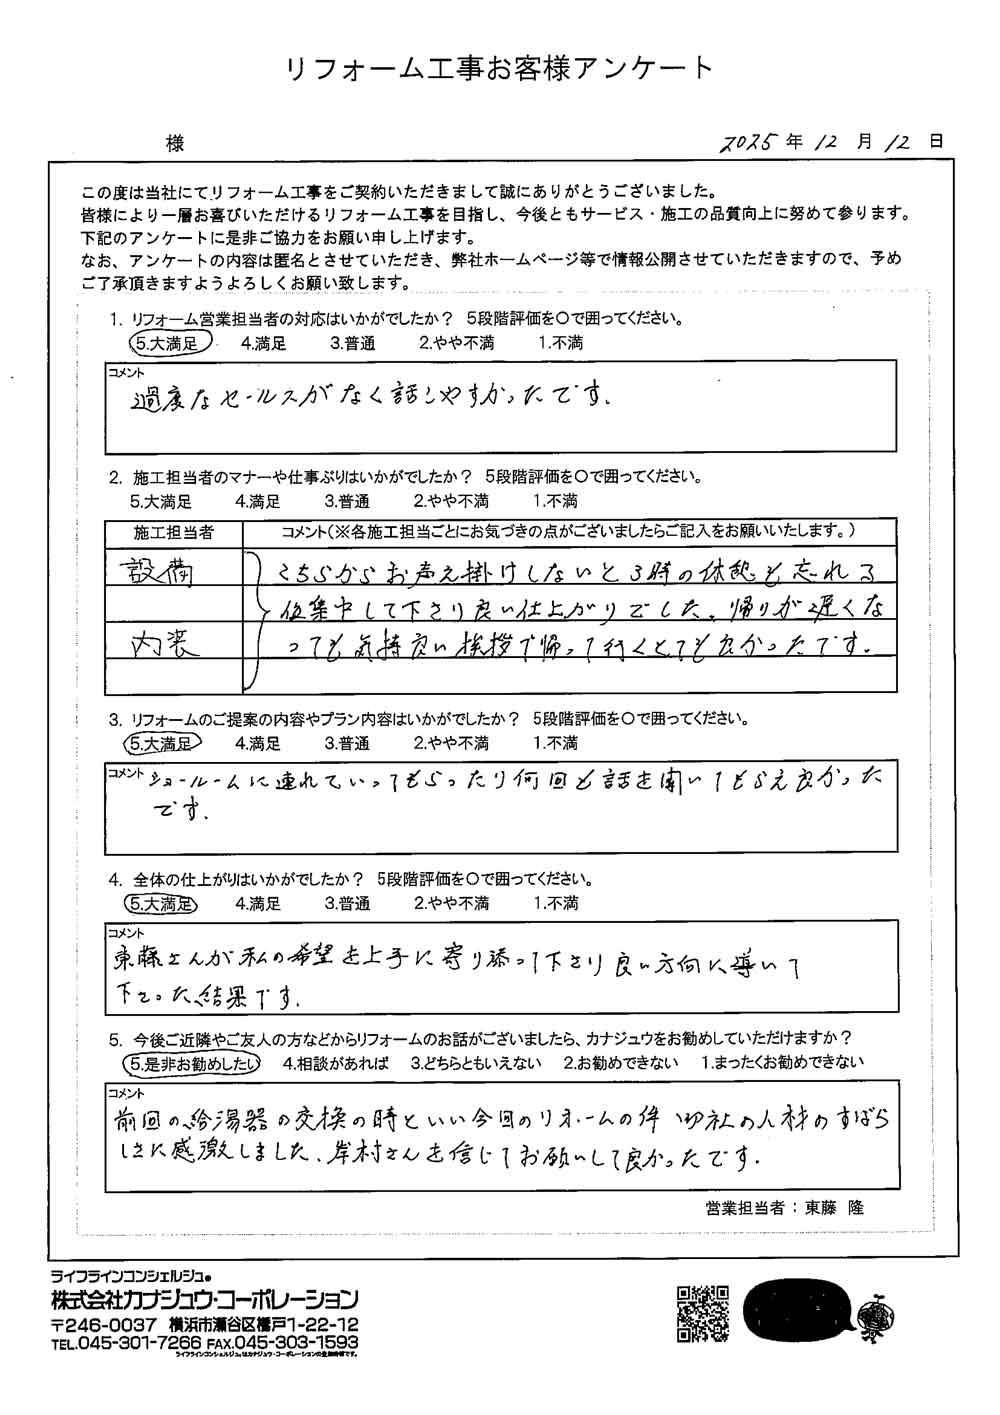 リフォーム工事お客様アンケート
様 2025年12月12日
この度は当社にてリフォーム工事をご契約いただきまして誠にありがとうございました。
皆様により一層お喜びいただけるリフォーム工事を目指し、今後ともサービス・施工の品質向上に努めて参ります。
下記のアンケートに是非ご協力をお願い申し上げます。
なお、アンケートの内容は匿名とさせていただき、弊社ホームページ等で情報公開させていただきますので、予め
ご了承頂きますようよろしくお願い致します。
1. リフォーム営業担当者の対応はいかがでしたか? 5段階評価を○で囲ってください。
5.大満足 4.満足 3.普通 2.やや不満 1.不満
コメント
過度なセールスがなく話しやすかったです.
2. 施工担当者のマナーや仕事ぶりはいかがでしたか? 5段階評価を○で囲ってください。
5.大満足 4.満足 3.普通 2.やや不満 1.不満
施工担当者 コメント(※各施工担当ごとにお気づきの点がございましたらご記入をお願いいたします。)
設備 こちらからお声え掛けしないと3時の休憩も忘れる
位集中して下さり良い仕上がりでした、帰りが遅くな
内装 っても気持良い挨拶で帰って行くとても良かったです.
3. リフォームのご提案の内容やプラン内容はいかがでしたか? 5段階評価を○で囲ってください。
5.大満足 4.満足 3.普通 2.やや不満 1.不満
コメント ショールームに連れていってもらったり何回も話を聞いてもらえ良かった
です.
4. 全体の仕上がりはいかがでしたか? 5段階評価を○で囲ってください。
5.大満足 4.満足 3.普通 2.やや不満 1.不満
コメント
東藤さんが私の希望を上手に寄り添って下さり良い方向に導いて
下さった結果です.
5. 今後ご近隣やご友人の方などからリフォームのお話がございましたら、カナジュウをお勧めしていただけますか?
5.是非お勧めしたい 4.相談があれば 3.どちらともいえない 2.お勧めできない 1.まったくお勧めできない
コメント
前回の給湯器の交換の時といい今回のリホームの件 御社の人材のすばら
しさに感激しました、岸村さんを信じてお願いして良かったです.
営業担当者:東藤 隆
ライフラインコンシェルジュ®
株式会社カナジュウ・コーポレーション
〒246-0037 横浜市瀬谷区橋戸1-22-12
TEL.045-301-7266 FAX.045-303-1593
ライフラインコンシェルジュ®はカナジュウ・コーポレーションの登録商標です。